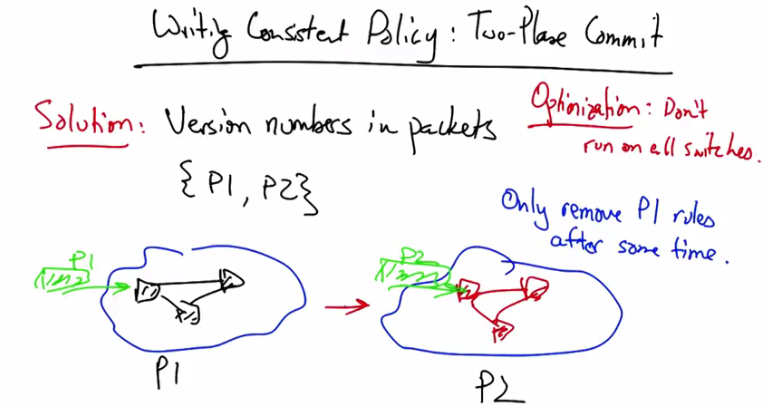 Writing Consistent Policy: Two-Phase Commit
Solution: Version numbers in packets
{P1, P2}
Optimization: Don't
run on all switches.
Only remove P1 rules
after some time.
P1
P2
P1
P2